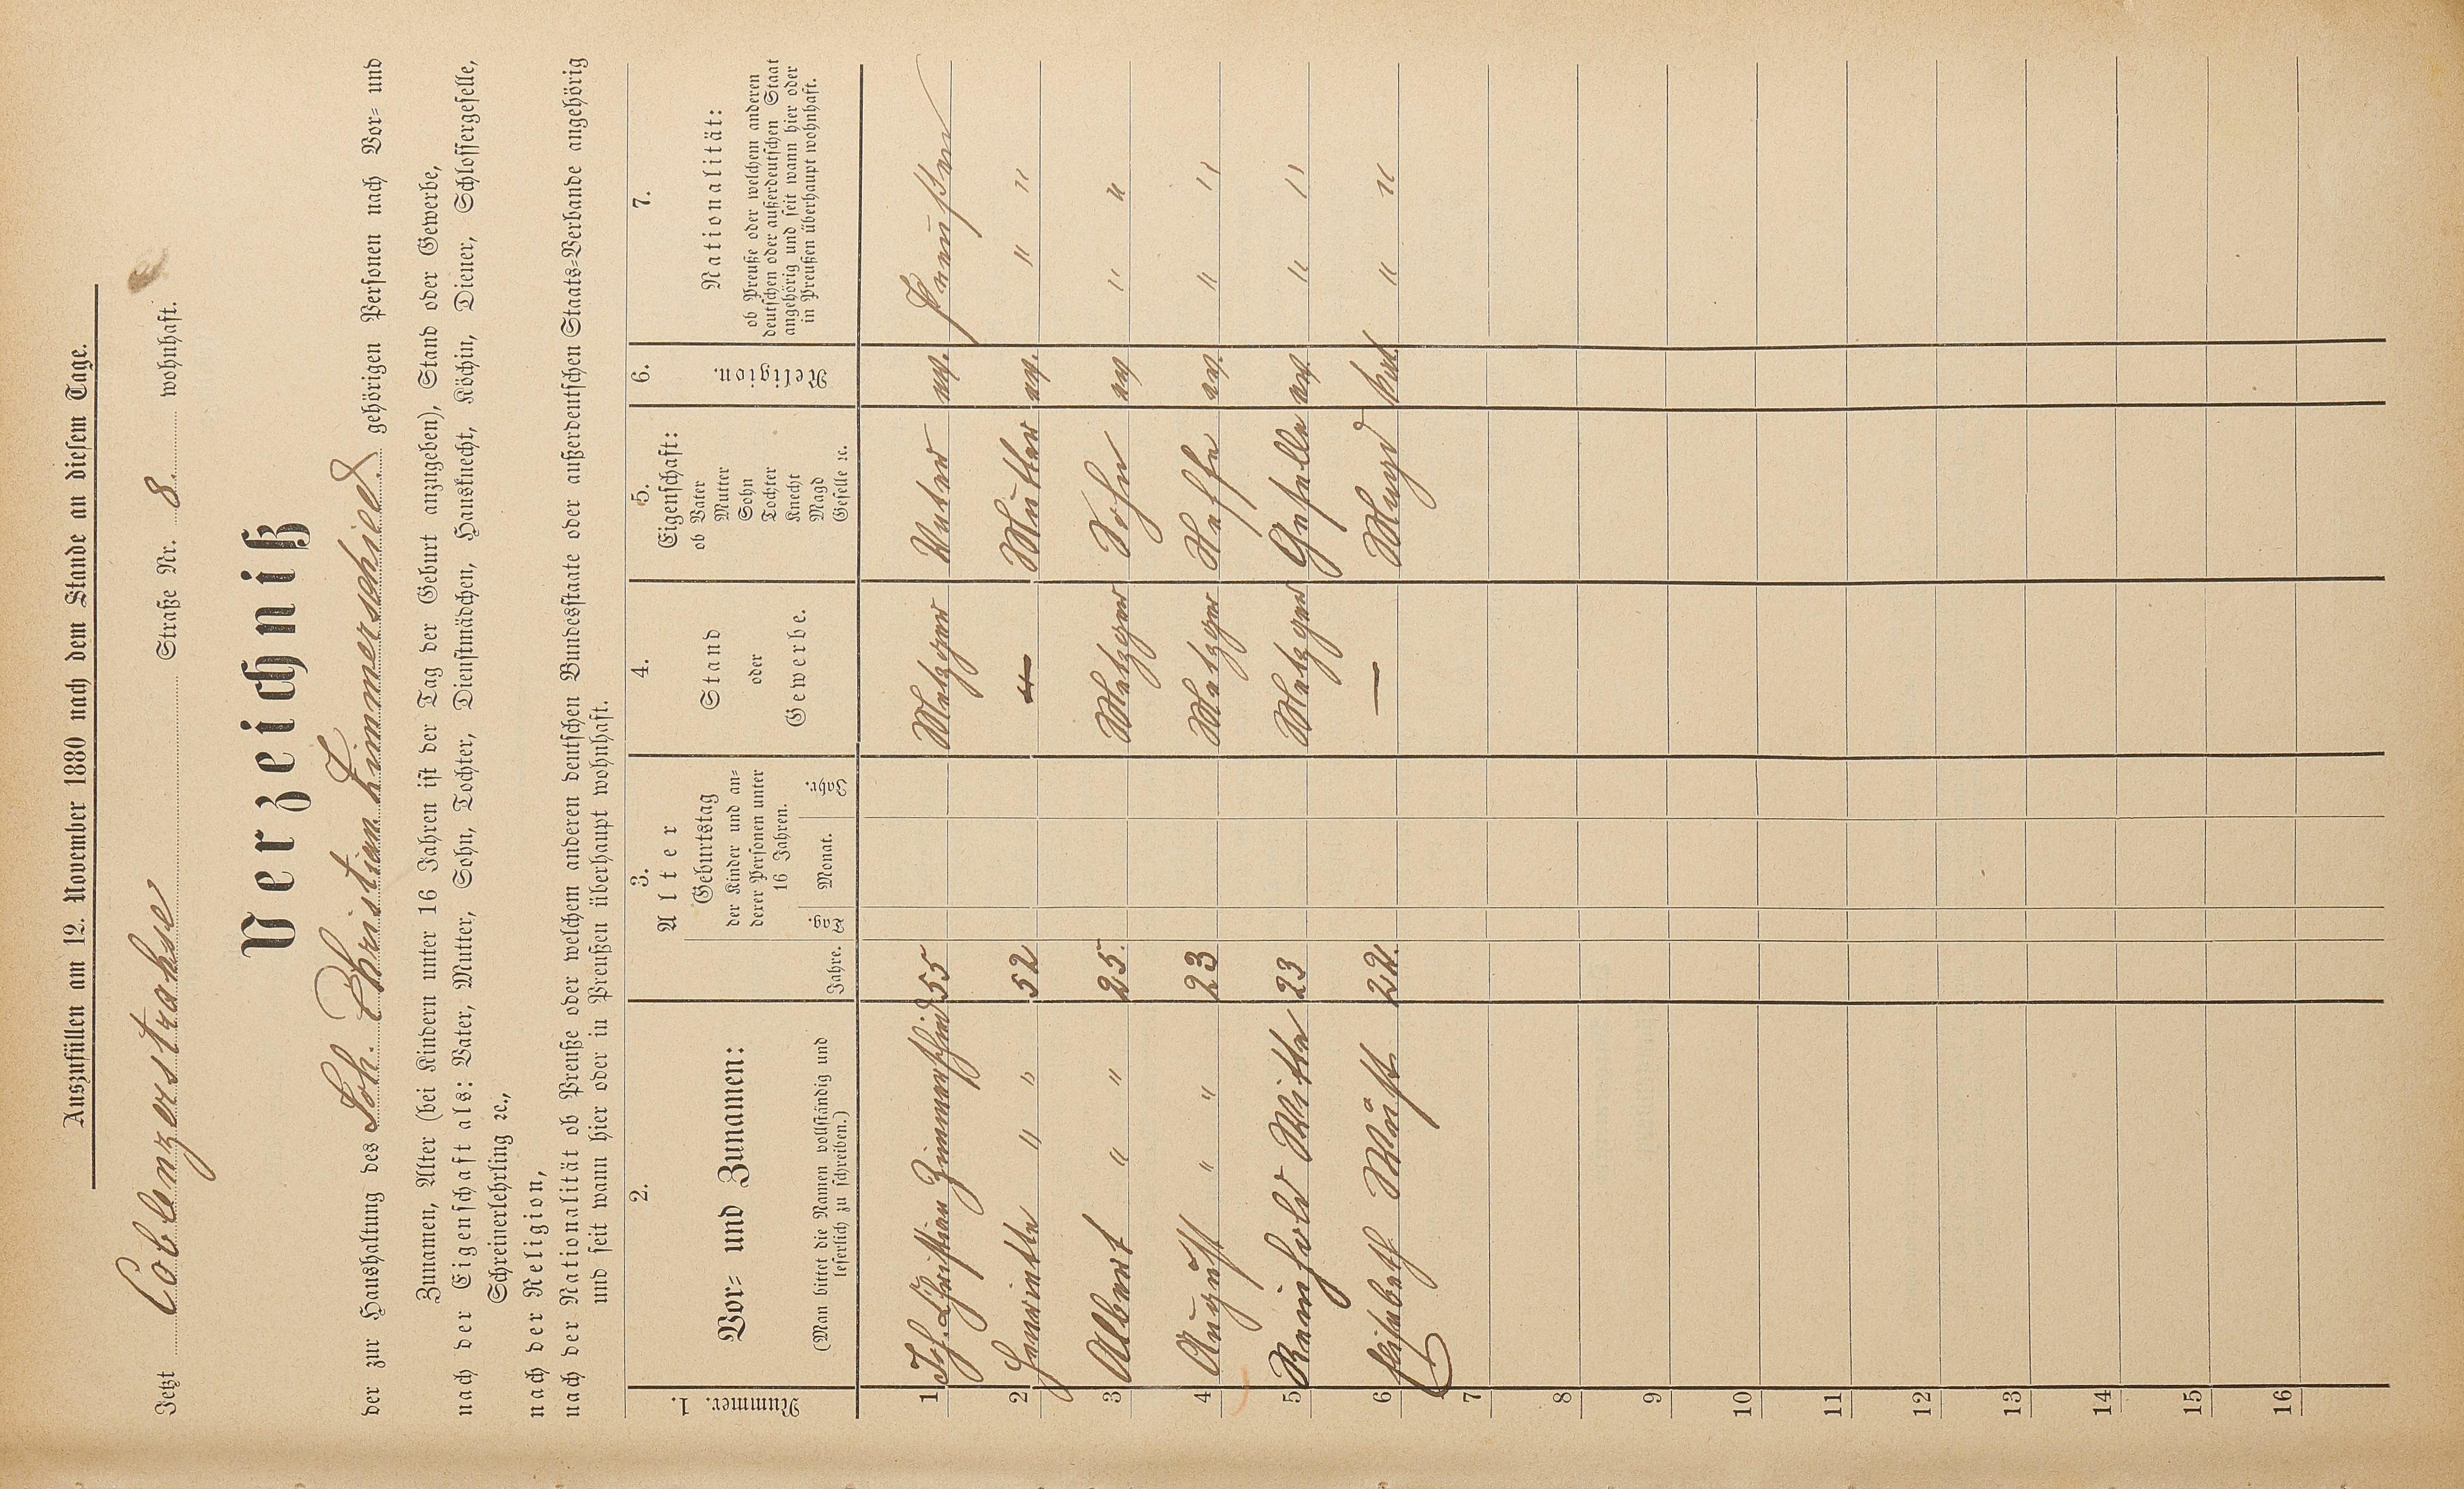 Auszufüllen am 12. November 1880 nach dem Stande an diesem Tage.
Jetzt Coblenzerstrahse Straße Nr. 8. wohnhaft.
Verzeichniß
der zur Haushaltung des Joh. Christian Zimmerschied gehörigen Personen nach Vor- und
Zunamen, Alter (bei Kindern unter 16 Jahren ist der Tag der Geburt anzugeben), Stand oder Gewerbe,
nach der Eigenschaft als: Vater, Mutter, Sohn, Tochter, Dienstmädchen, Hausknecht, Köchin, Diener, Schlossergeselle,
Schreinerlehrling ꝛc.,
nach der Religion,
nach der Nationalität ob Preuße oder welchem anderen deutschen Bundesstaate oder außerdeutschen Staats-Verbande angehörig
und seit wann hier oder in Preußen überhaupt wohnhaft.
Nummer. 1.
2.
Vor- und Zunamen:
(Man bittet die Namen vollständig und
leserlich zu schreiben.)
3.
Alter
Jahre.
Geburtstag
der Kinder und an-
derer Personen unter
16 Jahren.
Tag.
Monat.
Jahr.
4.
Stand
oder
Gewerbe.
5.
Eigenschaft:
ob Vater
Mutter
Sohn
Tochter
Knecht
Magd
Geselle ꝛc.
6.
Religion.
7.
Nationalität:
ob Preuße oder welchem anderen
deutschen oder außerdeutschen Staat
angehörig und seit wann hier oder
in Preußen überhaupt wohnhaft.
1 Joh. Christian Zimmerschied 55 Metzger Vater ev. Preußen
2 Henriette " " 52 " Mutter ev. " "
3 Albert " " 25. Metzger Sohn ev " "
4 August " " 23 Metzger Neffe ev. " "
5 Reinhold Witte 23 Metzger Geselle ev. " "
6 Elisabeth Wüst 22. — Magd kat. " "
7
8
9
10
11
12
13
14
15
16